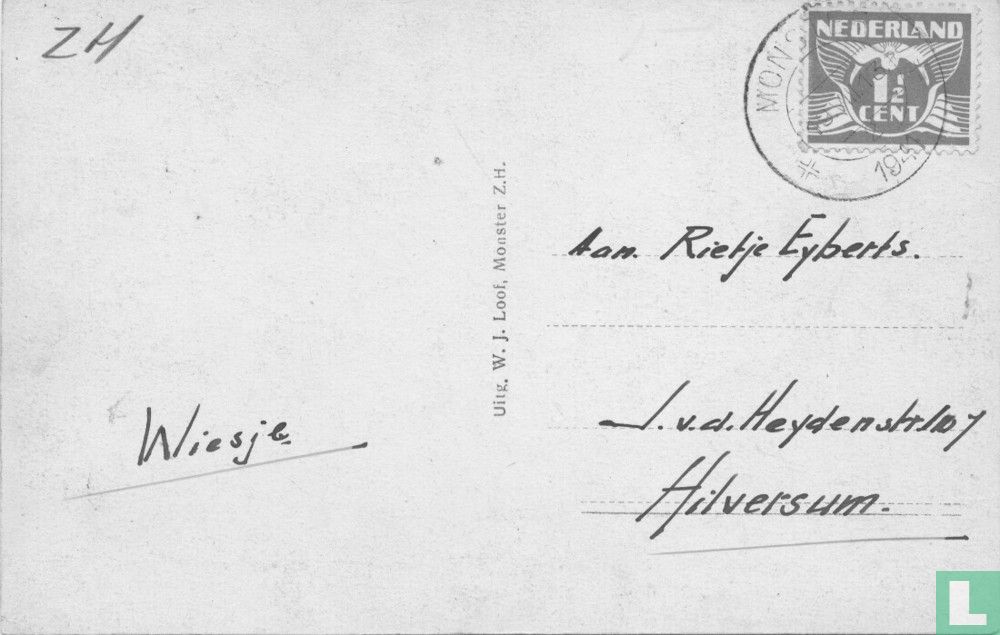 ZH
NEDERLAND
1½
CENT
MONS
Uitg. W. J. Loof, Monster Z.H.
Aan. Rietje Eyberts.
J. v.d. Heydenstr. 107
Hilversum.
Wiesje
L